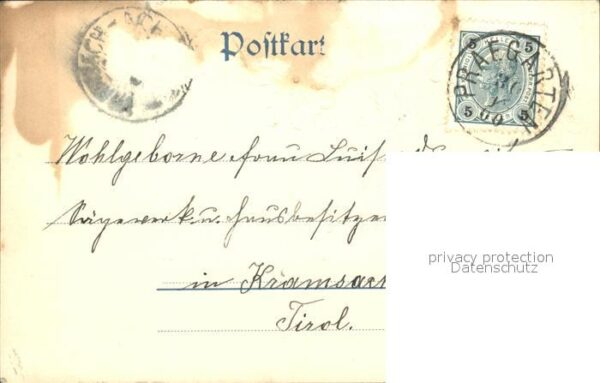 Postkart
5 5
PRAEGARTEN
00
5 5
Wohlgeborne Frau Luis
Sägewerk u. Hausbesitze
in Kramsac
Tirol.
privacy protection
Datenschutz